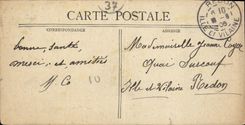 37
CARTE POSTALE
CORRESPONDANCE
ADRESSE
bonne santé
merci et amitiés
10
REDON
ILLE ET VILAINE
Mademoiselle Jeanne
Quai Surcouf
Ille et Vilaine Redon